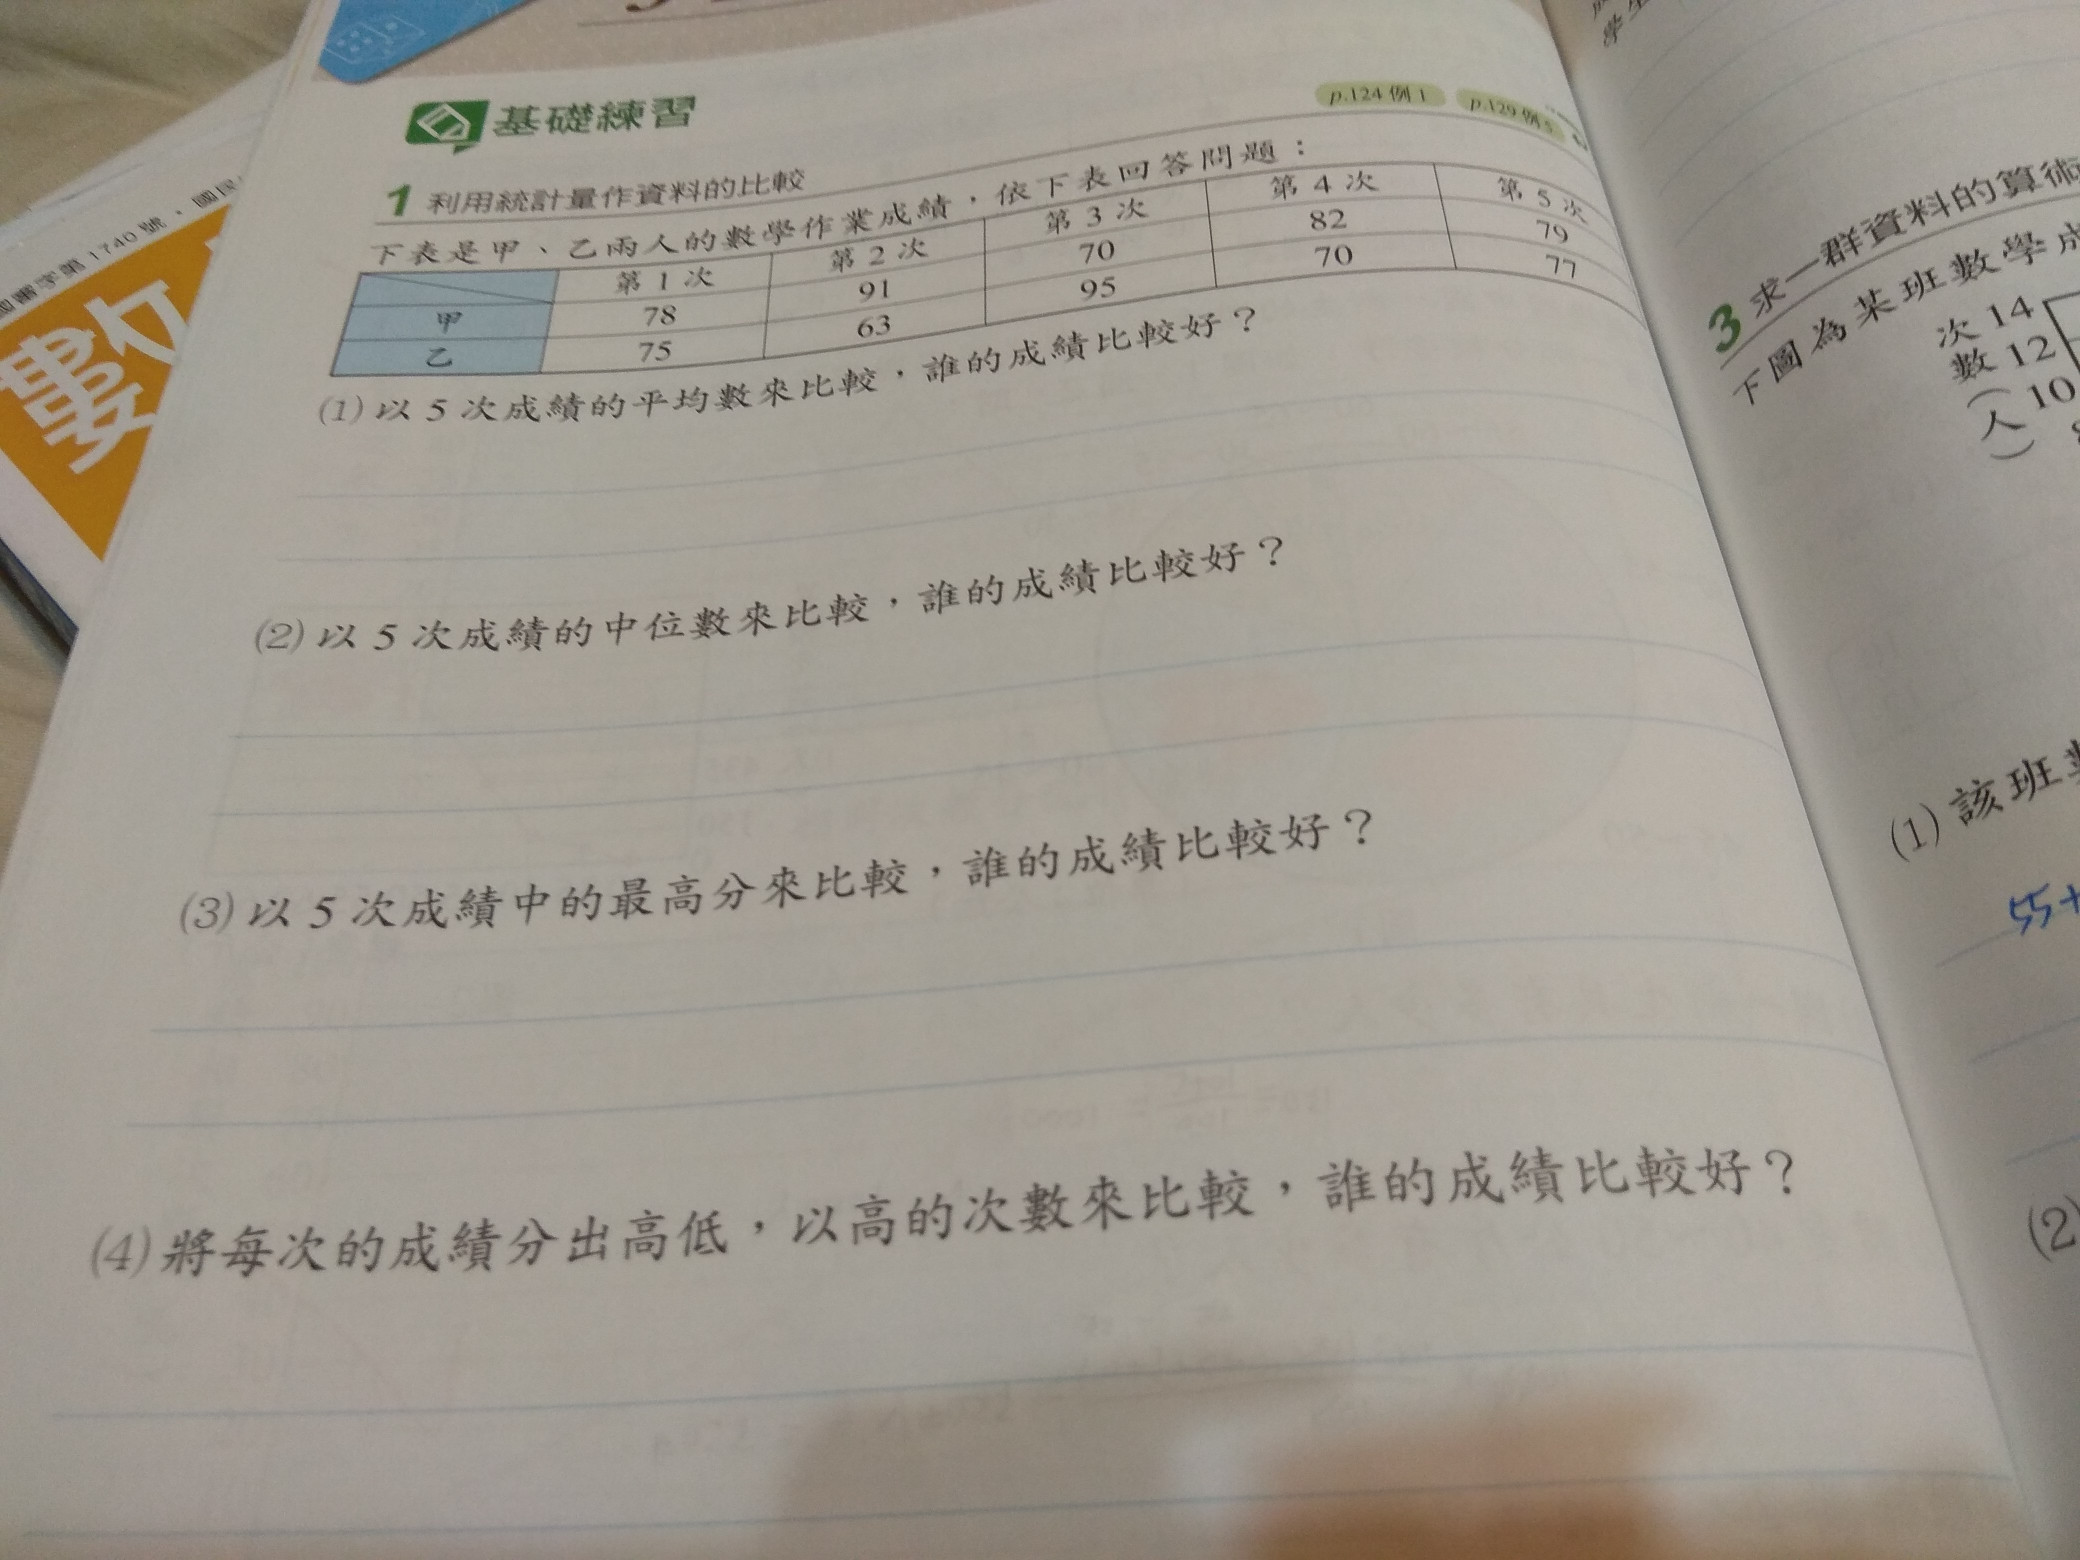 國書字第 1740 號、國民
數
基礎練習
p.124 例 1
p.129 例 5
1 利用統計量作資料的比較
下表是甲、乙兩人的數學作業成績，依下表回答問題：
第 1 次 第 2 次 第 3 次 第 4 次 第 5 次
甲 78 91 70 82 79
乙 75 63 95 70 77
(1) 以 5 次成績的平均數來比較，誰的成績比較好？
(2) 以 5 次成績的中位數來比較，誰的成績比較好？
(3) 以 5 次成績中的最高分來比較，誰的成績比較好？
(4) 將每次的成績分出高低，以高的次數來比較，誰的成績比較好？
3 求一群資料的算術
下圖為某班數學成
次數(人)
14
12
10
(1) 該班
55+
(2)